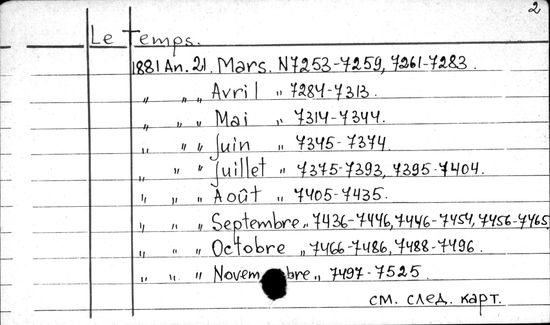 2
Le Temps.
1881 An. 21. Mars. N7253-7259, 7261-7283.
„ „ „ Avril „ 7284-7313.
„ „ „ Mai „ 7314-7344.
„ „ „ Juin „ 7345-7374.
„ „ „ Juillet „ 7375-7393, 7395-7404.
„ „ „ Août „ 7405-7435.
„ „ „ Septembre „ 7436-7446, 7446-7454, 7456-7465
„ „ „ Octobre „ 7466-7486, 7488-7496.
„ „ „ Novembre „ 7497-7525
см. след. карт.